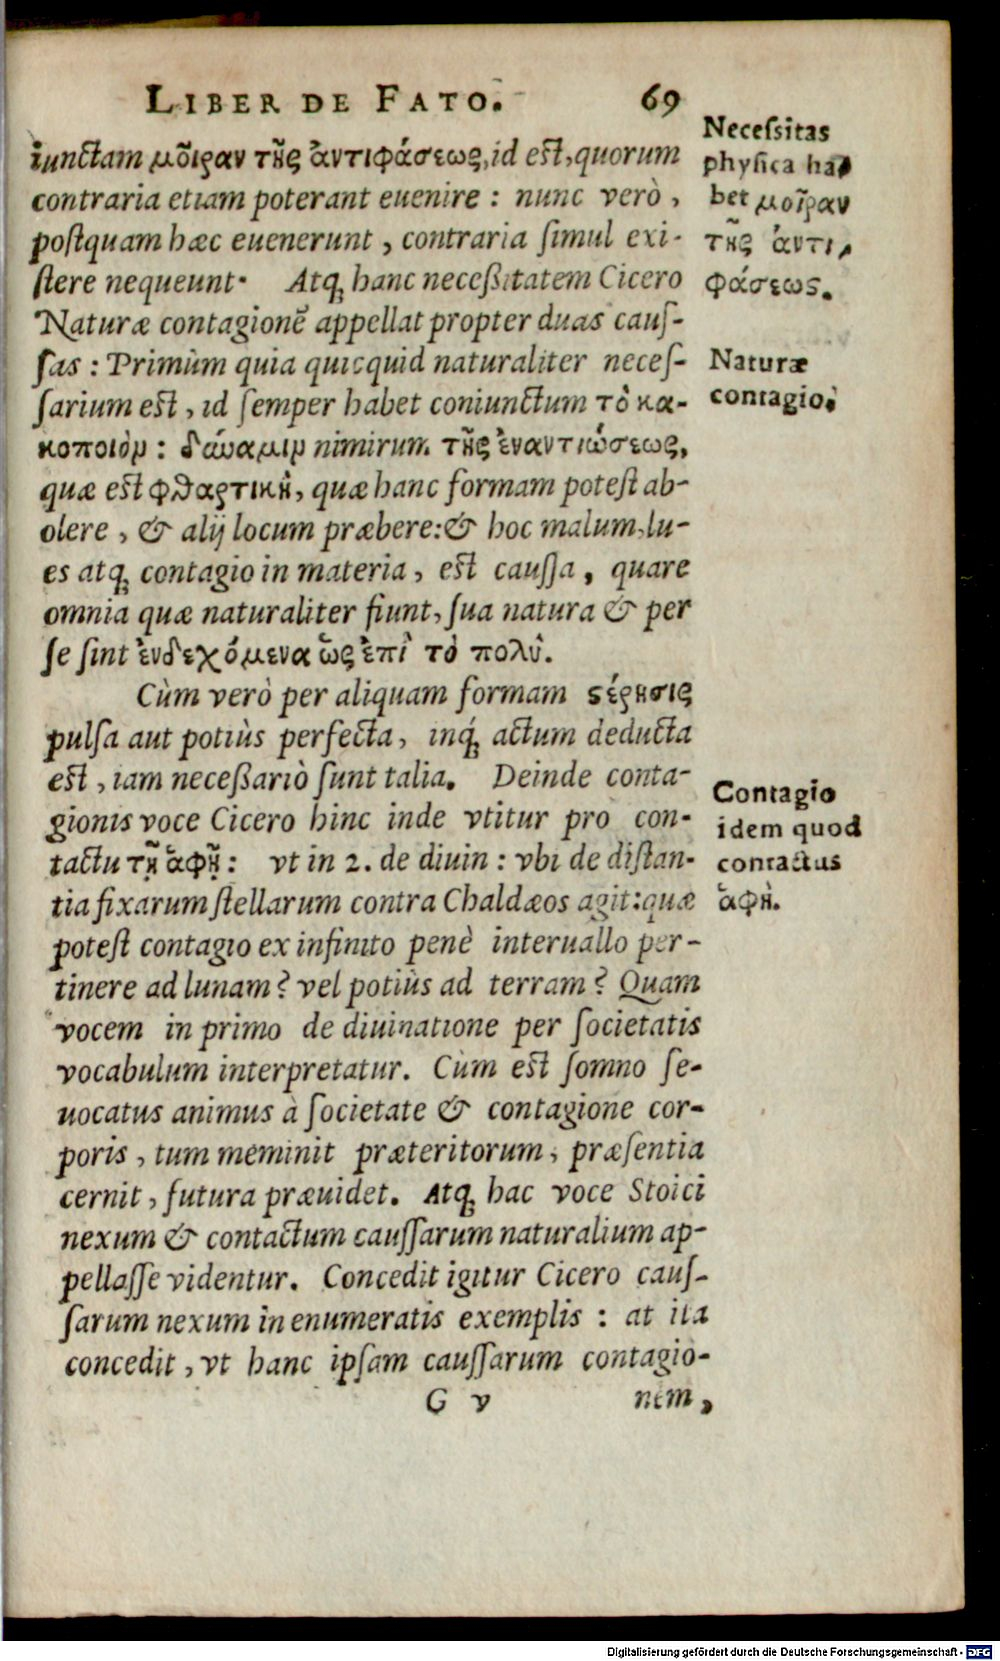 LIBER DE FATO. 69
iunctam μοῖραν τῆς ἀντιφάσεως, id est, quorum
contraria etiam poterant euenire : nunc verò ,
postquam hæc euenerunt , contraria simul exi-
stere nequeunt. Atq; hanc neceßitatem Cicero
Naturæ contagionē appellat propter duas caus-
sas : Primùm quia quicquid naturaliter neces-
sarium est , id semper habet coniunctum τὸ κα-
κοποιὸν : δύναμιν nimirum τῆς ἐναντιώσεως,
quæ est φθαρτικὴ, quæ hanc formam potest ab-
olere , & alij locum præbere: & hoc malum, lu-
es atq; contagio in materia , est caussa , quare
omnia quæ naturaliter fiunt, sua natura & per
se sint ἐνδεχόμενα ὡς ἐπὶ τὸ πολὺ.
Cùm verò per aliquam formam στέρησις
pulsa aut potiùs perfecta, inq; actum deducta
est , iam neceßariò sunt talia. Deinde conta-
gionis voce Cicero hinc inde vtitur pro con-
tactu τῇ ἁφῇ : vt in 2. de diuin : vbi de distan-
tia fixarum stellarum contra Chaldæos agit: quæ
potest contagio ex infinito penè interuallo per-
tinere ad lunam? vel potiùs ad terram? Quam
vocem in primo de diuinatione per societatis
vocabulum interpretatur. Cùm est somno se-
uocatus animus à societate & contagione cor-
poris , tum meminit præteritorum, præsentia
cernit , futura præuidet. Atq; hac voce Stoici
nexum & contactum caussarum naturalium ap-
pellasse videntur. Concedit igitur Cicero caus-
sarum nexum in enumeratis exemplis : at ita
concedit , vt hanc ipsam caussarum contagio-
G v nem,
Necessitas
physica ha-
bet μοῖραν
τῆς ἀντι-
φάσεως.
Naturæ
contagio.
Contagio
idem quod
contactus
ἁφὴ.
Digitalisierung gefördert durch die Deutsche Forschungsgemeinschaft - DFG